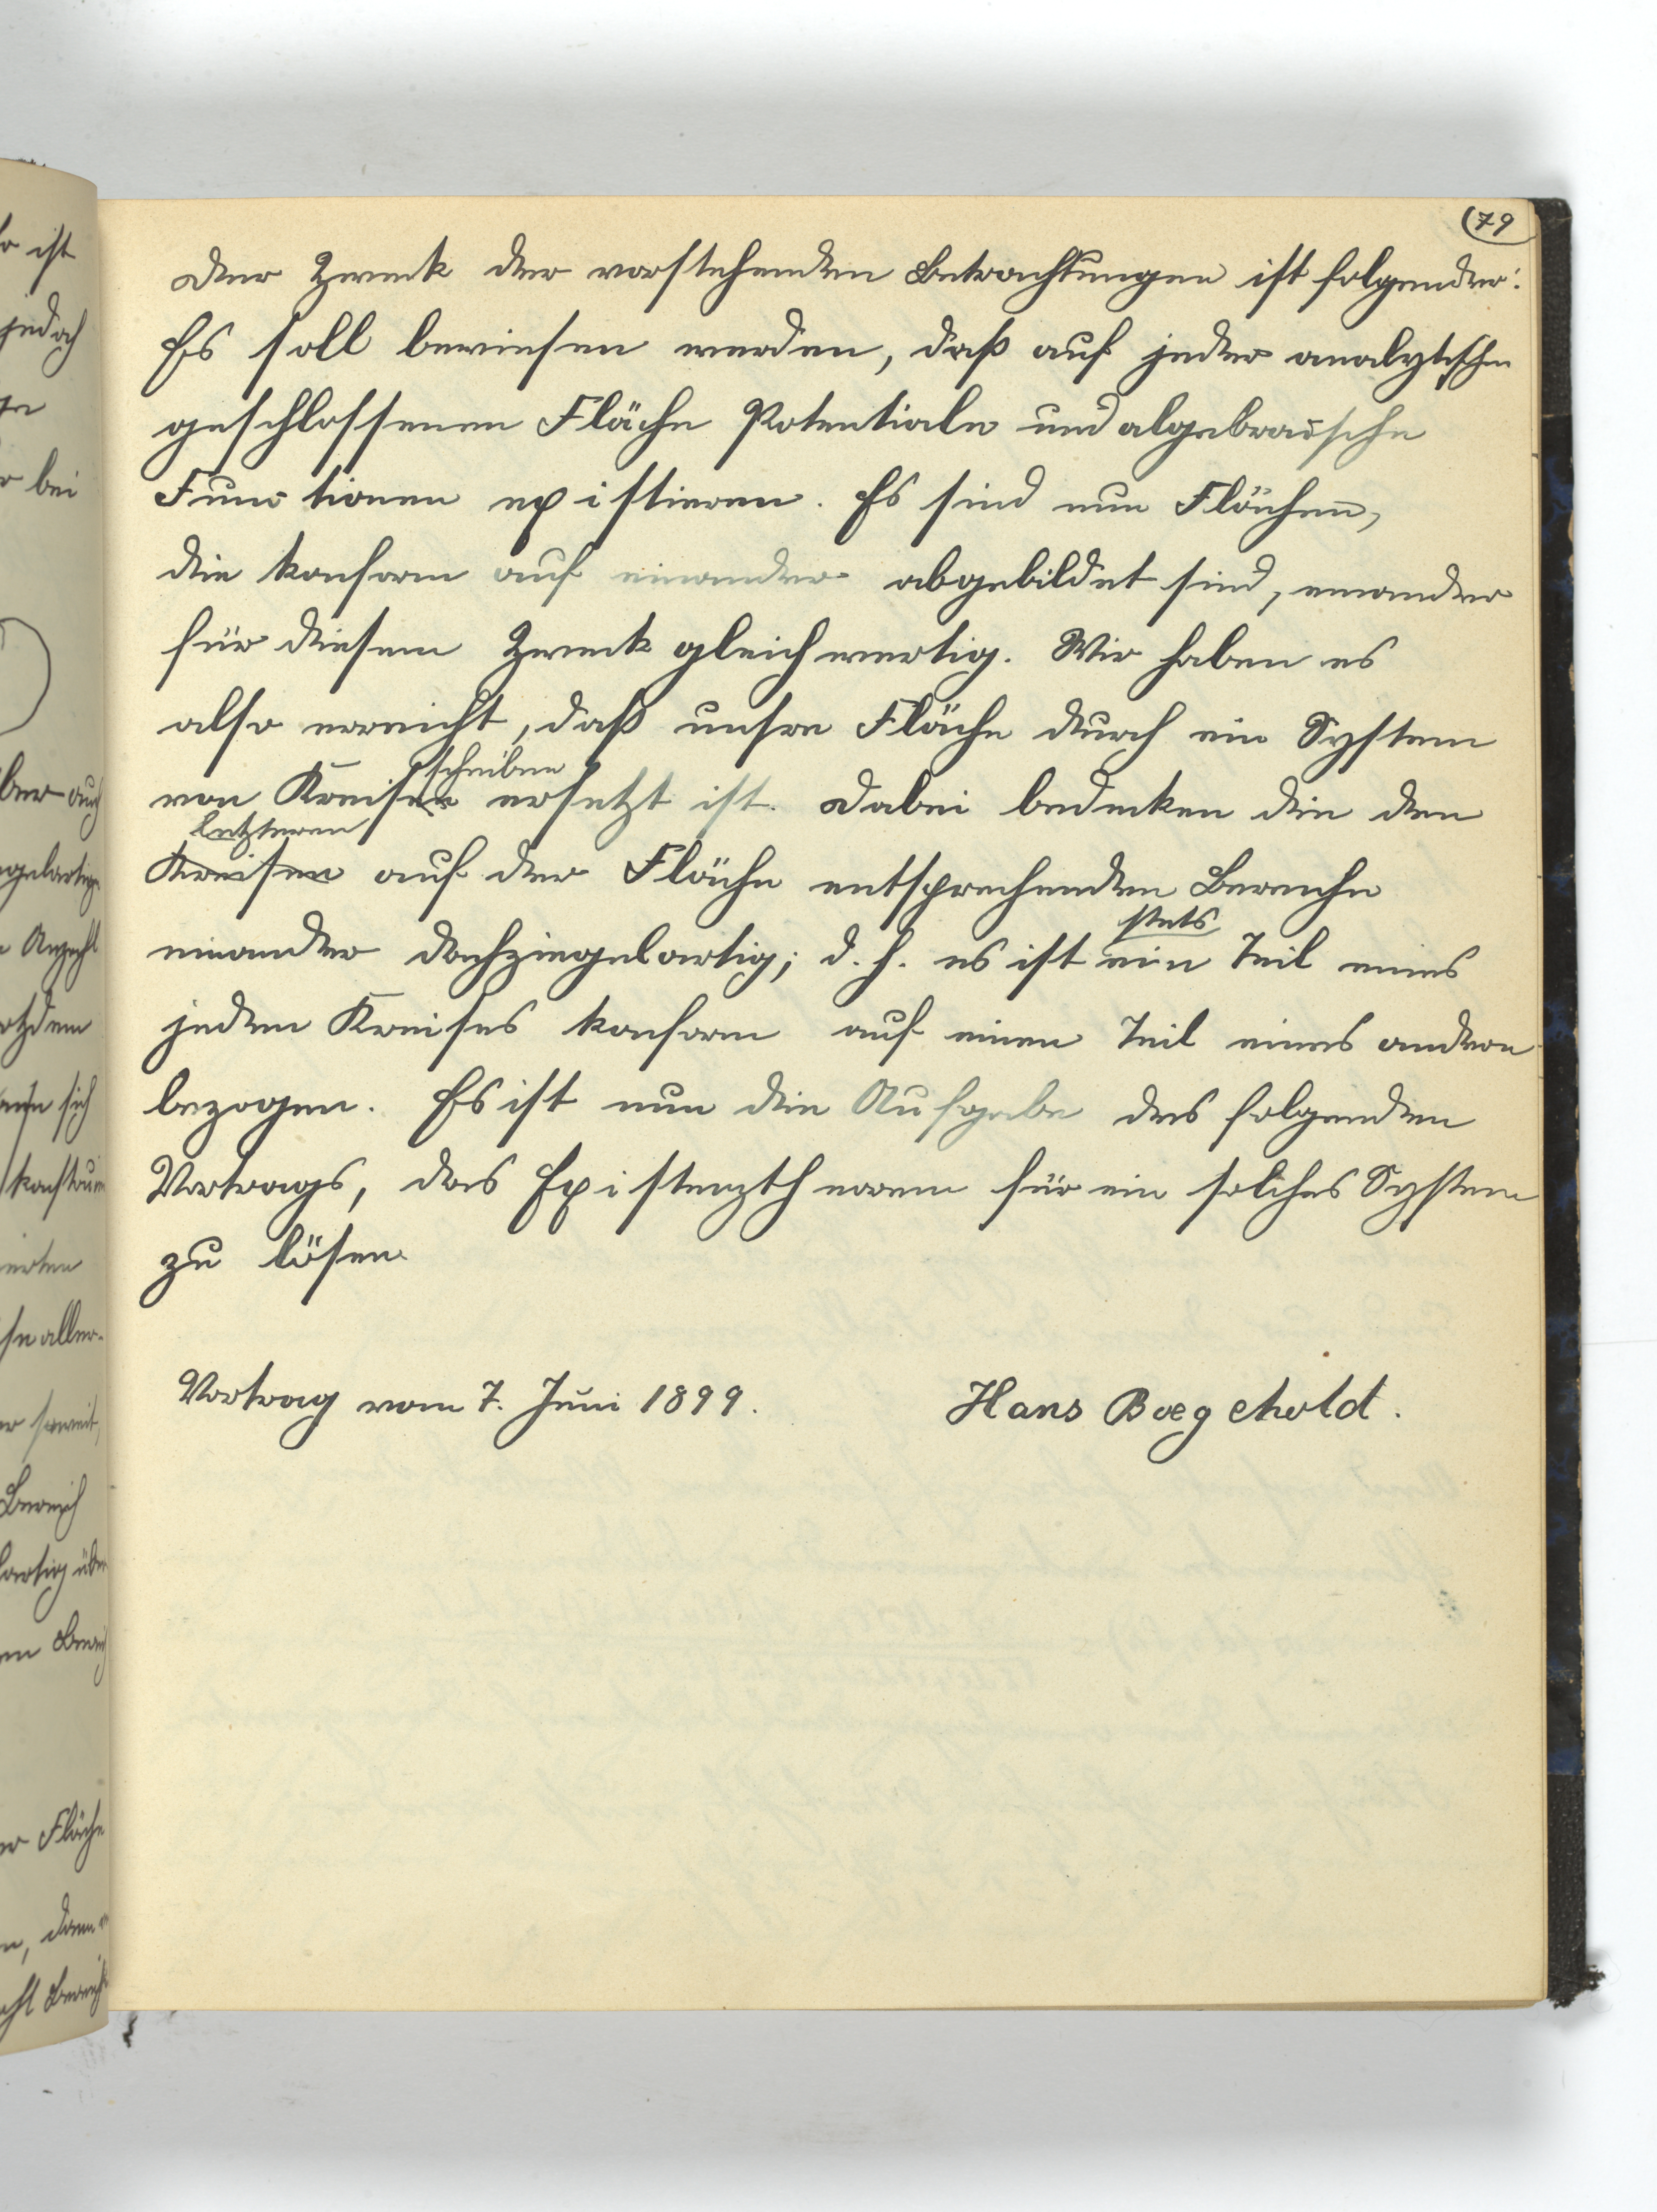 79
Der Zweck der vorstehenden Betrachtungen ist folgender:
Es soll bewiesen werden, daß auf jeder analytischen
geschlossenen Fläche Potentiale und algebraische
Functionen existieren. Es sind nun Flächen,
die konform auf einander abgebildet sind, einander
für diesen Zweck gleichwertig. Wir haben es
also erreicht, daß unsre Fläche durch ein System
scheiben
von Kreisen ersetzt ist. Dabei bedecken die den
letzteren
Kreisen auf der Fläche entsprechenden Bereiche
stets
einander dachziegelartig; d. h. es ist ein Teil eines
jeden Kreises konform auf einen Teil eines andren
bezogen. Es ist nun die Aufgabe des folgenden
Vortrags, das Existenztheorem für ein solches System
zu lösen.
Vortrag vom 7. Juni 1899.
Hans Boegehold.